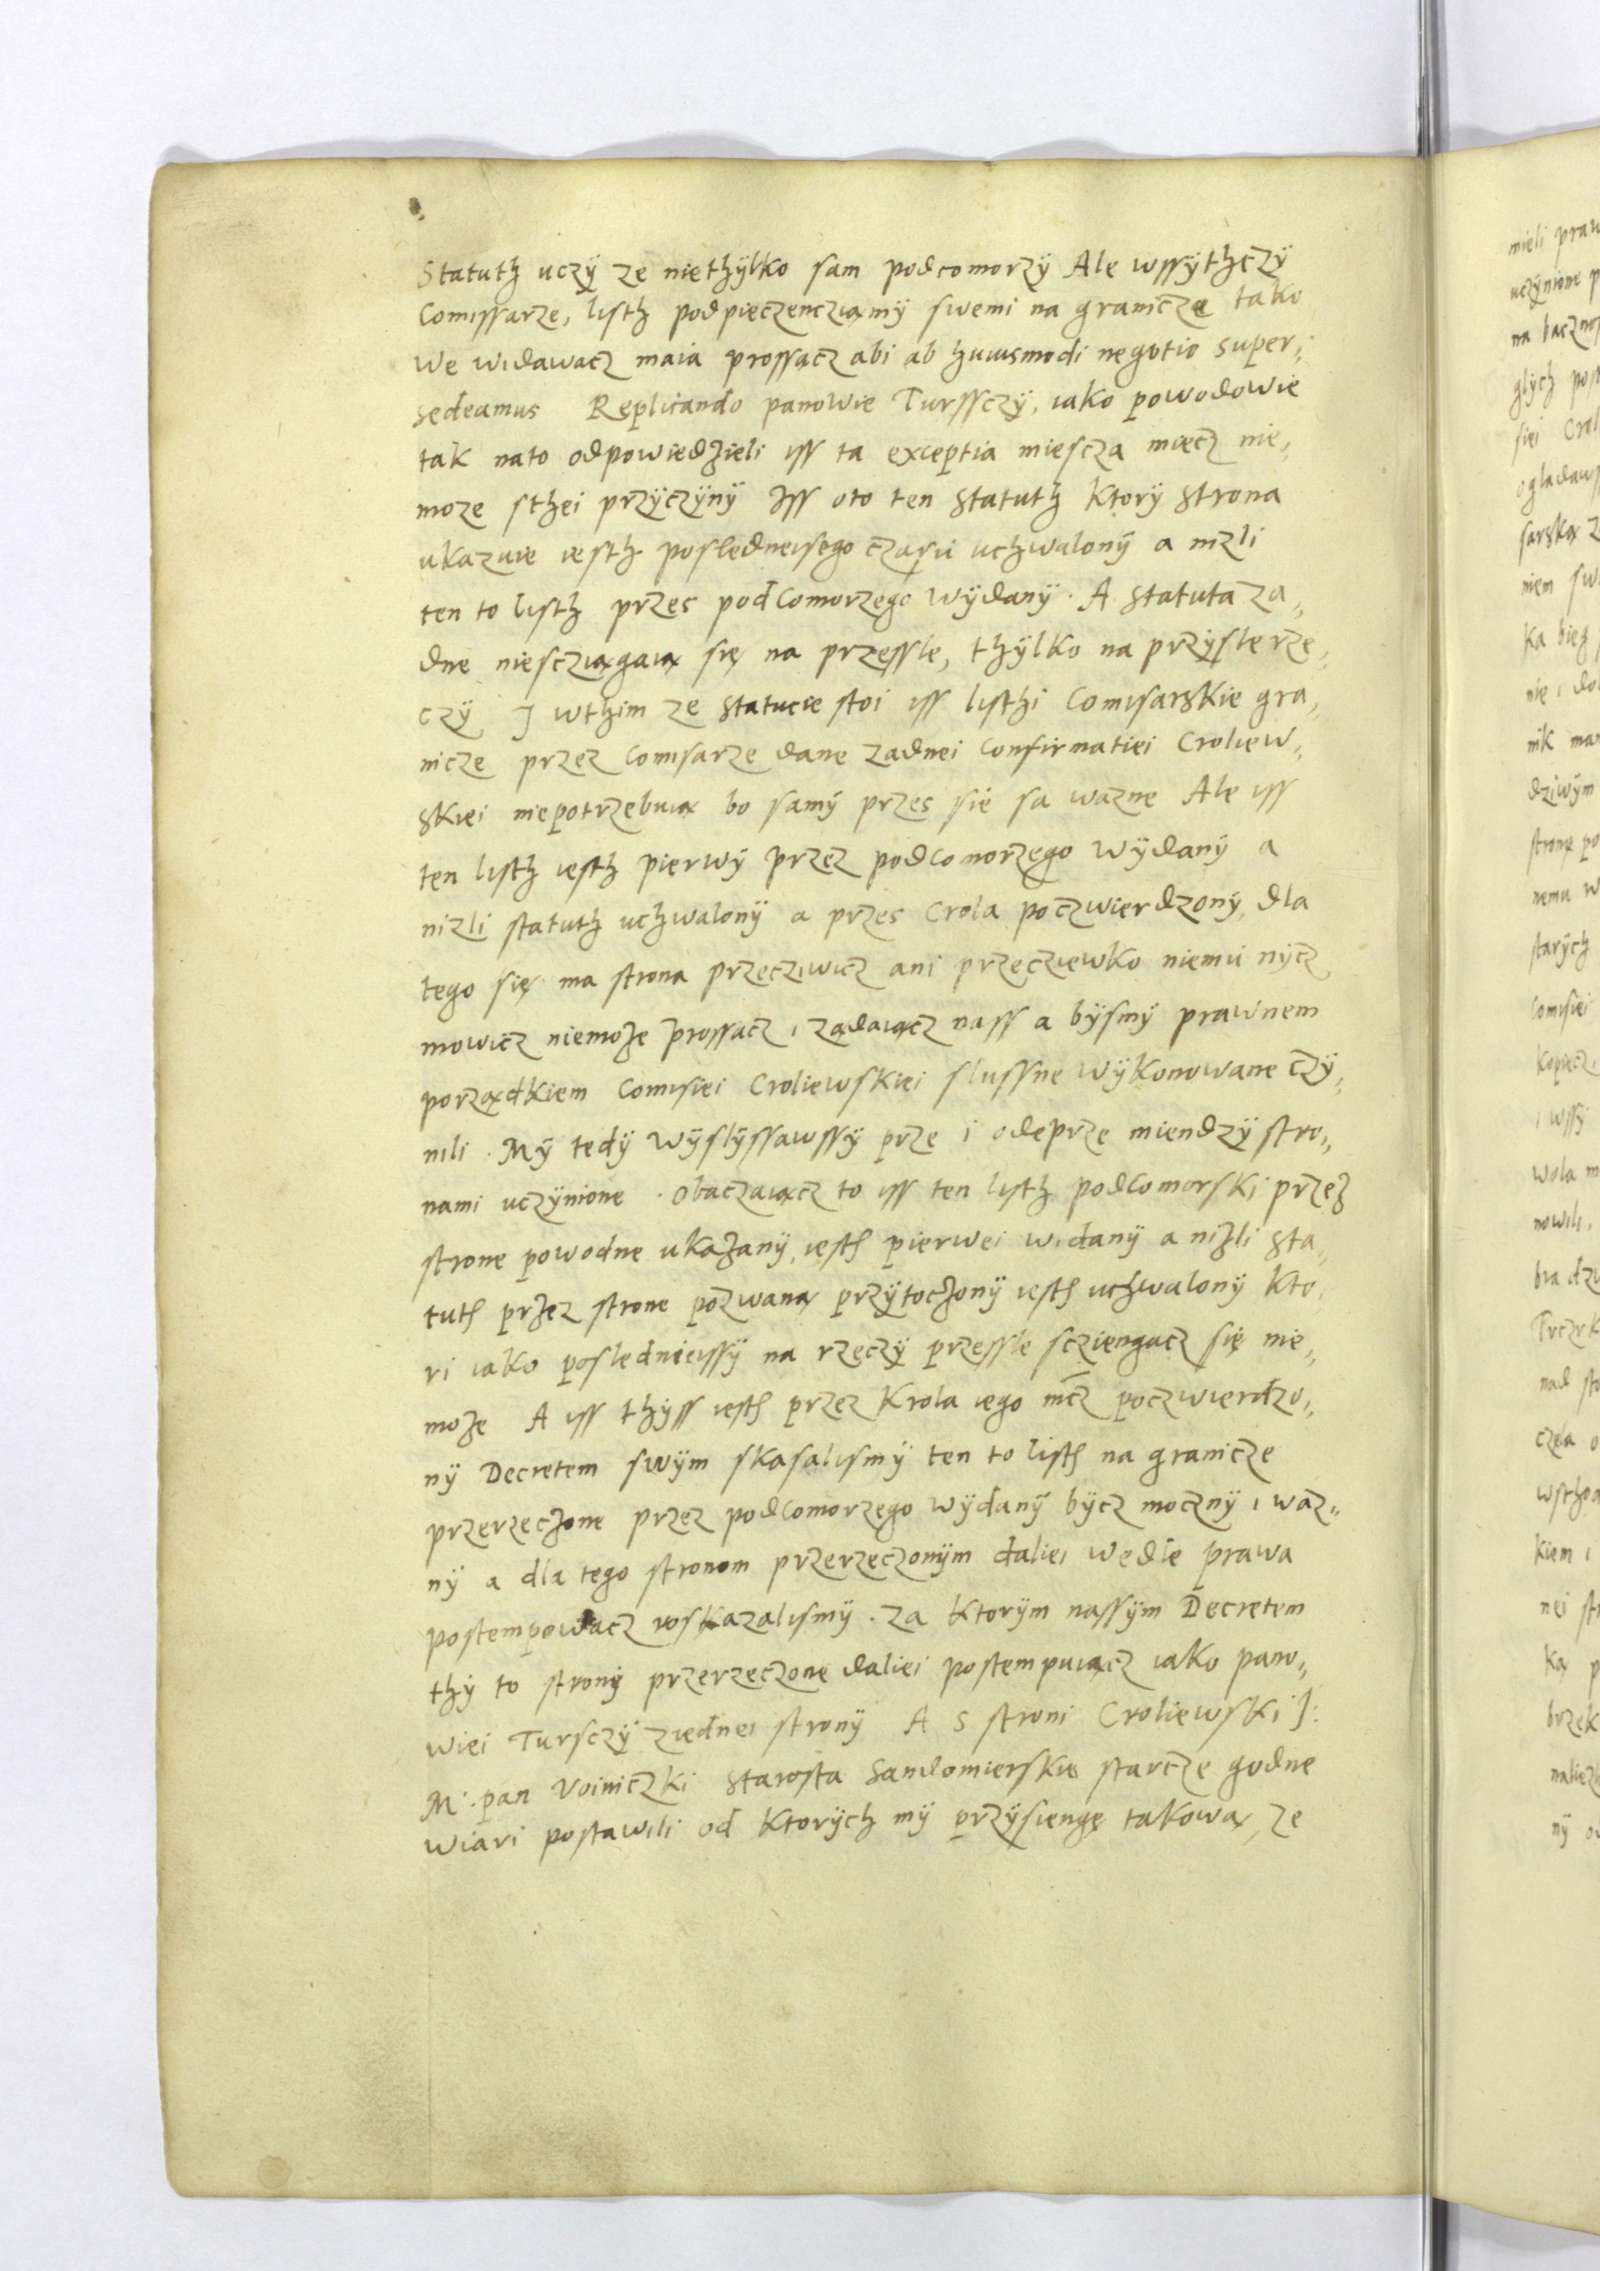 Statuth uczÿ ze niethÿlko sam podcomorzÿ Ale wssÿthczÿ
Comissarze, listh podpieczencziamÿ swemi na granicze tako
we widawacz maia prossącz abi ab huiusmodi negotio super„
sedeamus Replicando panowie Turssczÿ, iako powodowie
tak nato odpowiedzieli iss ta exceptia miescza miecz nie„
moze sthei przÿczÿnÿ Iss oto ten statuth ktorÿ strona
ukazuie iesth poslednieisego czasu uchwalonÿ a nizli
ten to listh przes podcomorzego wÿdanÿ. A statuta za„
dne niescziągaią się na przessle, thÿlko na przÿsle rze„
czÿ I wthim ze statucie stoi iss listhi Comisarskie gra„
nicze przez Comisarze dane zadnei Confirmatiei Croliew„
skiei niepotrzebuią bo samÿ przes sie sa wazne Ale iss
ten listh iesth pierwÿ przez podcomorzego wÿdanÿ a
nizli statuth uchwalonÿ a przes Crola poczwierdzonÿ, dla
tego się ma strona przecziwicz ani przecziewko niemu nÿcz
mowicz niemoze prossacz i ządaiącz nass a bÿsmÿ prawnem
porządkiem Comisiei Croliewskiei slussne wÿkonowane czÿ„
nili. Mÿ tedÿ wÿslÿssawssÿ prze i odeprze miendzÿ stro„
nami uczÿnione. obaczaiącz to iss ten listh podcomorski przez
strone powodne ukazanÿ, iesth pierwei widanÿ a nizli sta„
tuth przez strone pozwaną przÿtoczonÿ iesth uchwalonÿ kto„
ri iako poslednieissÿ na rzeczÿ przessle scziengacz się nie„
moze A iss thÿss iesth przez Krola iego mcz poczwierdzo„
nÿ Decretem swÿm skasalismÿ ten to listh na granicze
przerzeczone przez podcomorzego wÿdanÿ bÿcz mocznÿ i waz„
nÿ a dla tego stronom przerzeczonÿm daliei wedle prawa
postempowacz roskazalismÿ. za ktorÿm nassÿm Decretem
thÿ to stronÿ przerzeczone daliei postempuiącz iako pano„
wiei Tursczÿ ziednei stronÿ A s stroni Croliewski J:
M: pan Voiniczki starosta Sandomierskie starcze godne
wiari postawili od ktorÿch mÿ przÿsiengę takową ze